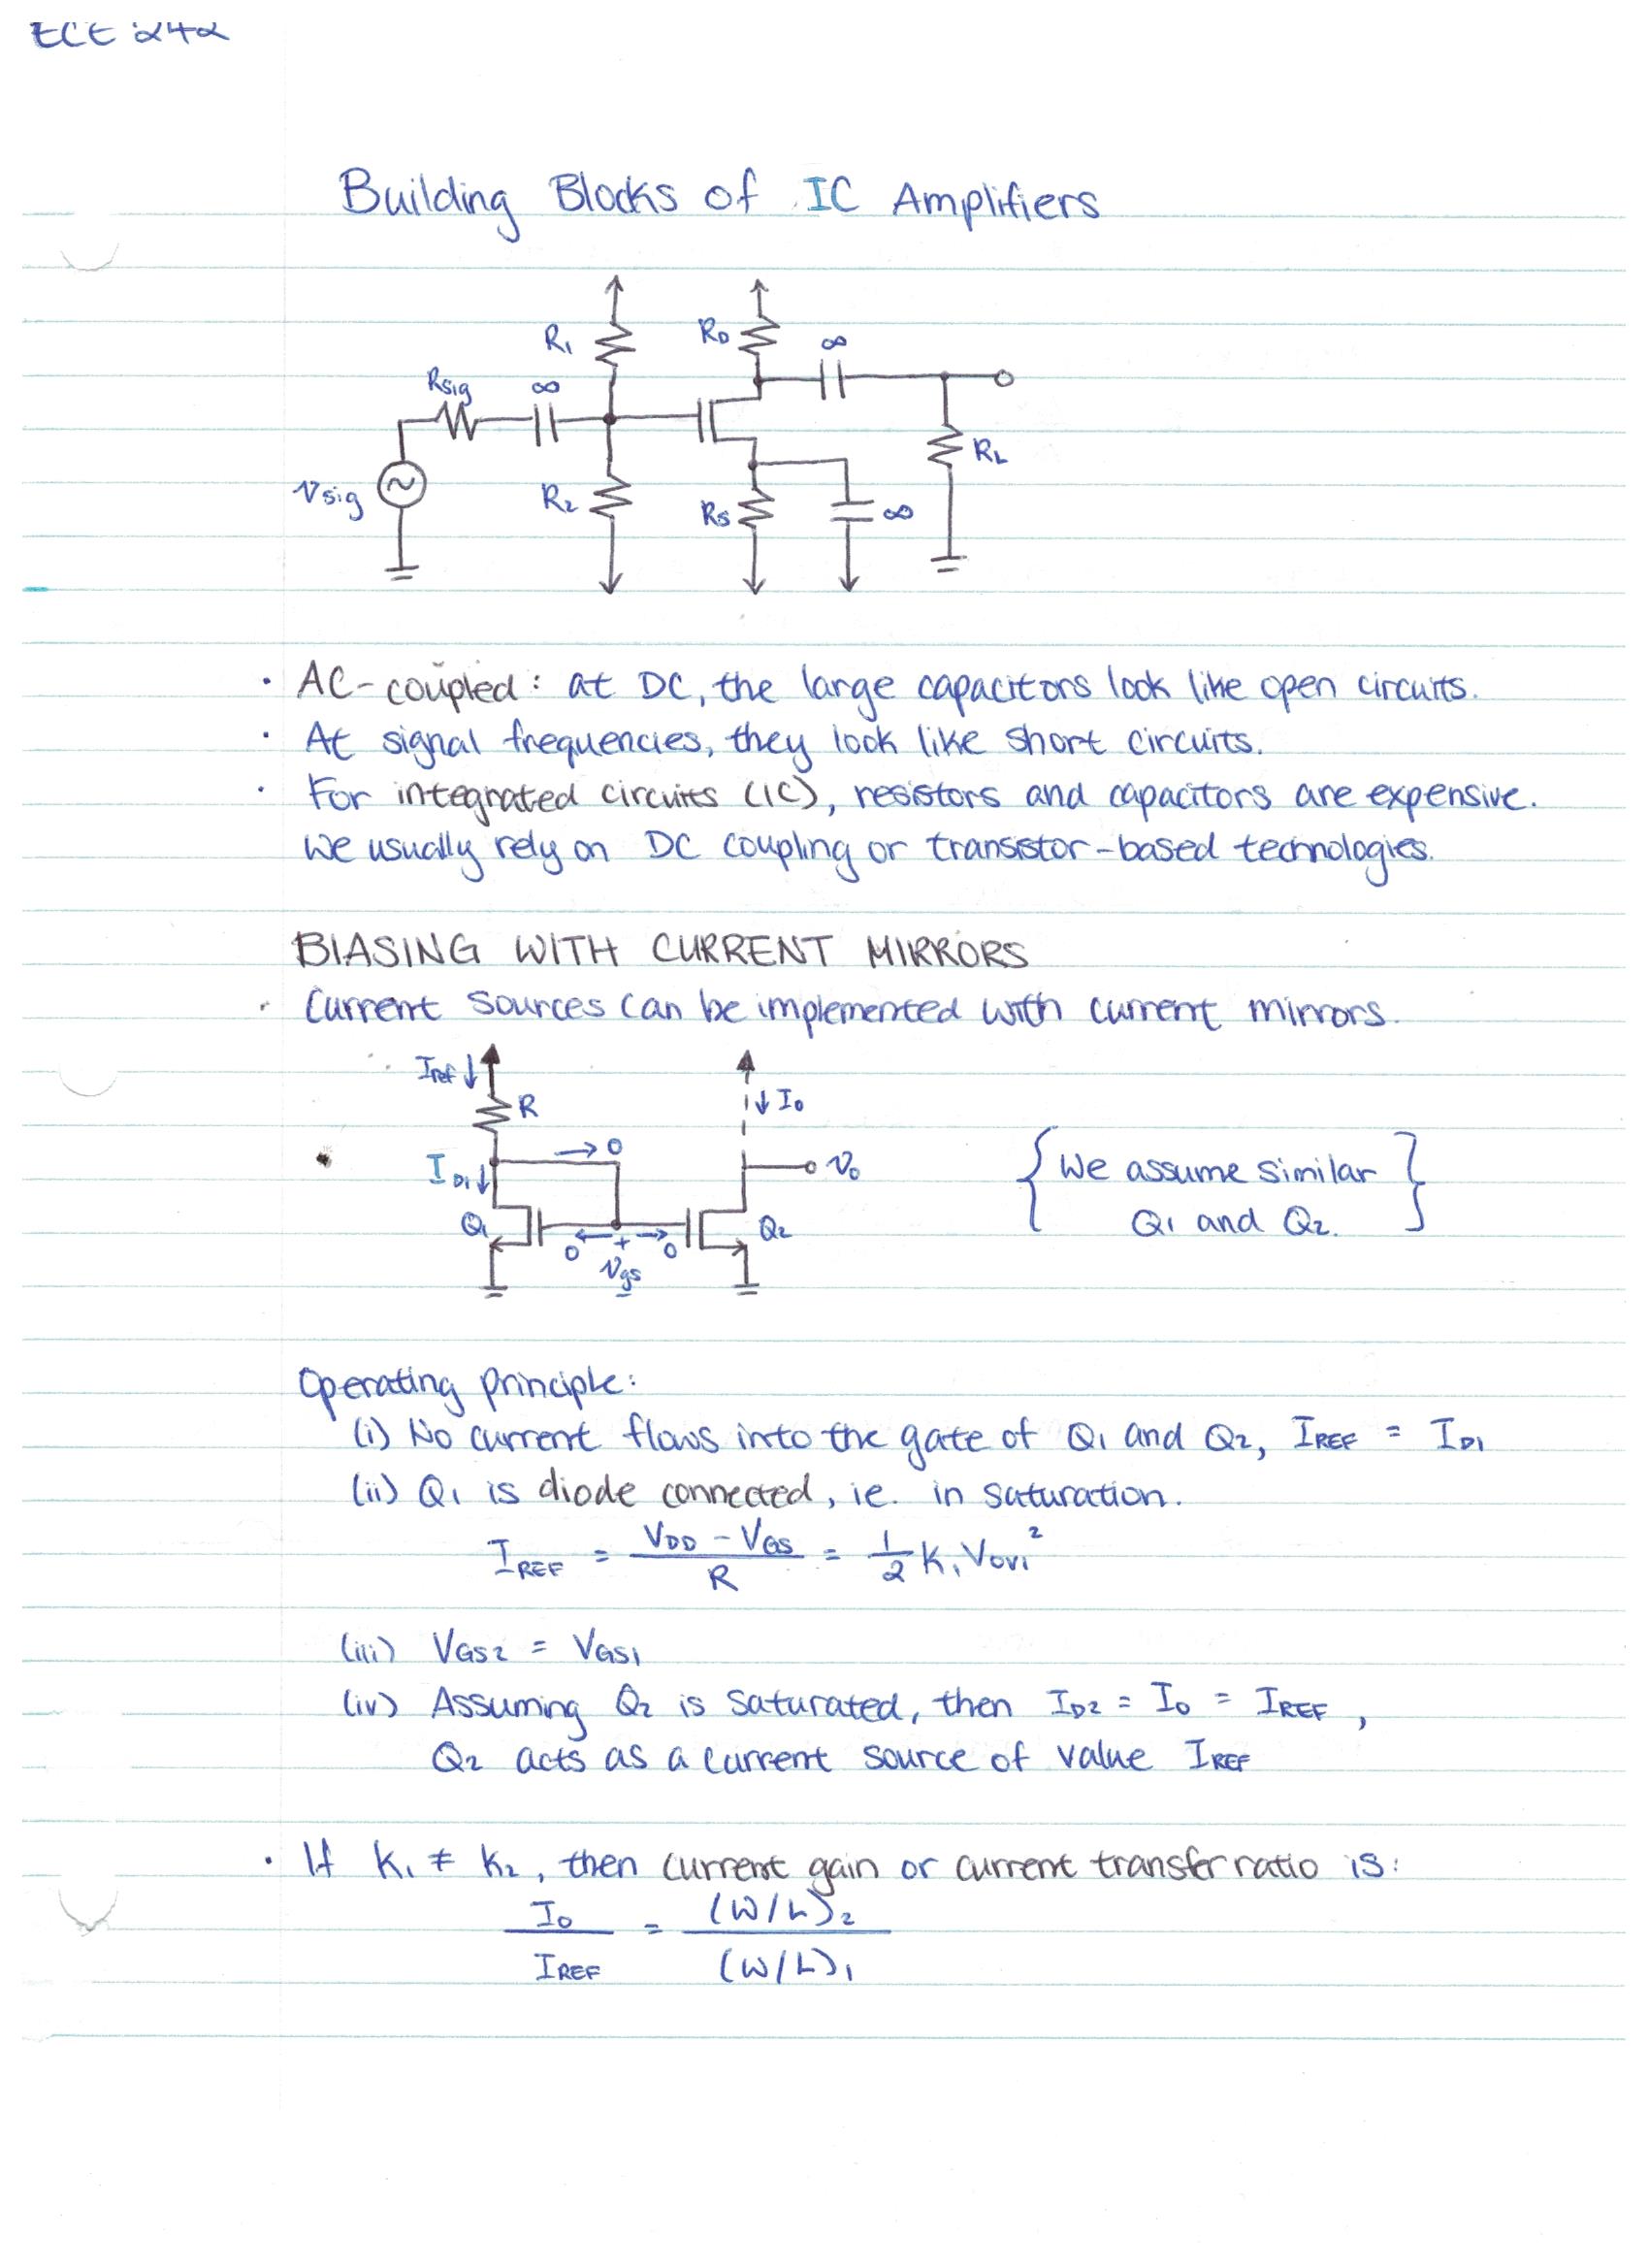 ECE 242
Building Blocks of IC Amplifiers
R1 RD ∞
Rsig ∞
RL
Vsig R2 RS ∞
• AC-coupled: at DC, the large capacitors look like open circuits.
• At signal frequencies, they look like short circuits.
• For integrated circuits (IC), resistors and capacitors are expensive.
We usually rely on DC coupling or transistor-based technologies.
BIASING WITH CURRENT MIRRORS
• Current sources can be implemented with current mirrors.
Iref ↓
R ↓ Io
→ 0
ID1 ↓ vo { We assume similar }
Q1 Q2 Q1 and Q2.
0 ← + → 0
Vgs
-
Operating principle:
(i) No current flows into the gate of Q1 and Q2, IREF = ID1
(ii) Q1 is diode connected, ie. in saturation.
IREF = (VDD - VGS)/R = 1/2 K1 VOV1²
(iii) VGS2 = VGS1
(iv) Assuming Q2 is saturated, then ID2 = Io = IREF,
Q2 acts as a current source of value IREF
• If K1 ≠ K2, then current gain or current transfer ratio is:
Io / IREF = (W/L)2 / (W/L)1